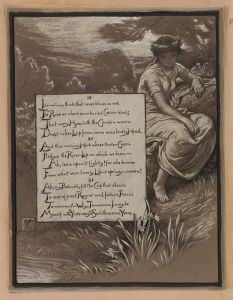 19
I sometimes think that never blows so red
The Rose as where some buried Cæsar bled;
That every Hyacinth the Garden wears
Dropt in her Lap from some once lovely Head.
20
And this reviving Herb whose tender Green
Fledges the River-Lip on which we lean—
Ah, lean upon it lightly! for who knows
From what once lovely Lip it springs unseen!
21
Ah, my Belovéd, fill the Cup that clears
To-day of past Regret and future Fears:
To-morrow!—Why, To-morrow I may be
Myself with Yesterday's Sev'n thousand Years.